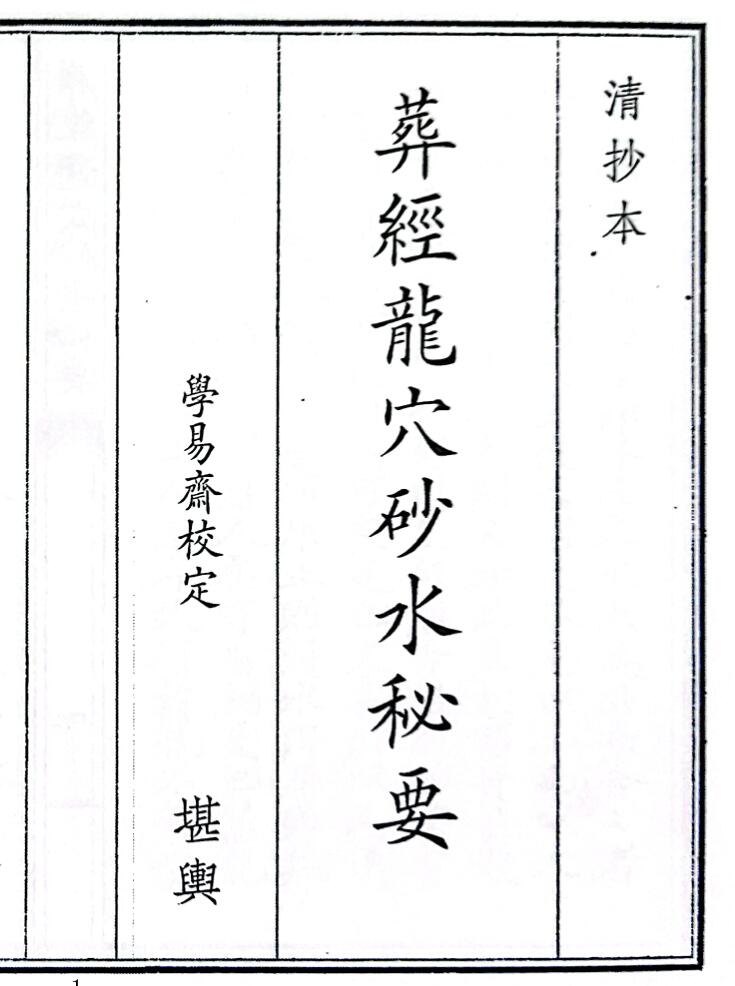 清抄本
葬經龍穴砂水秘要
學易齋校定 堪輿
1